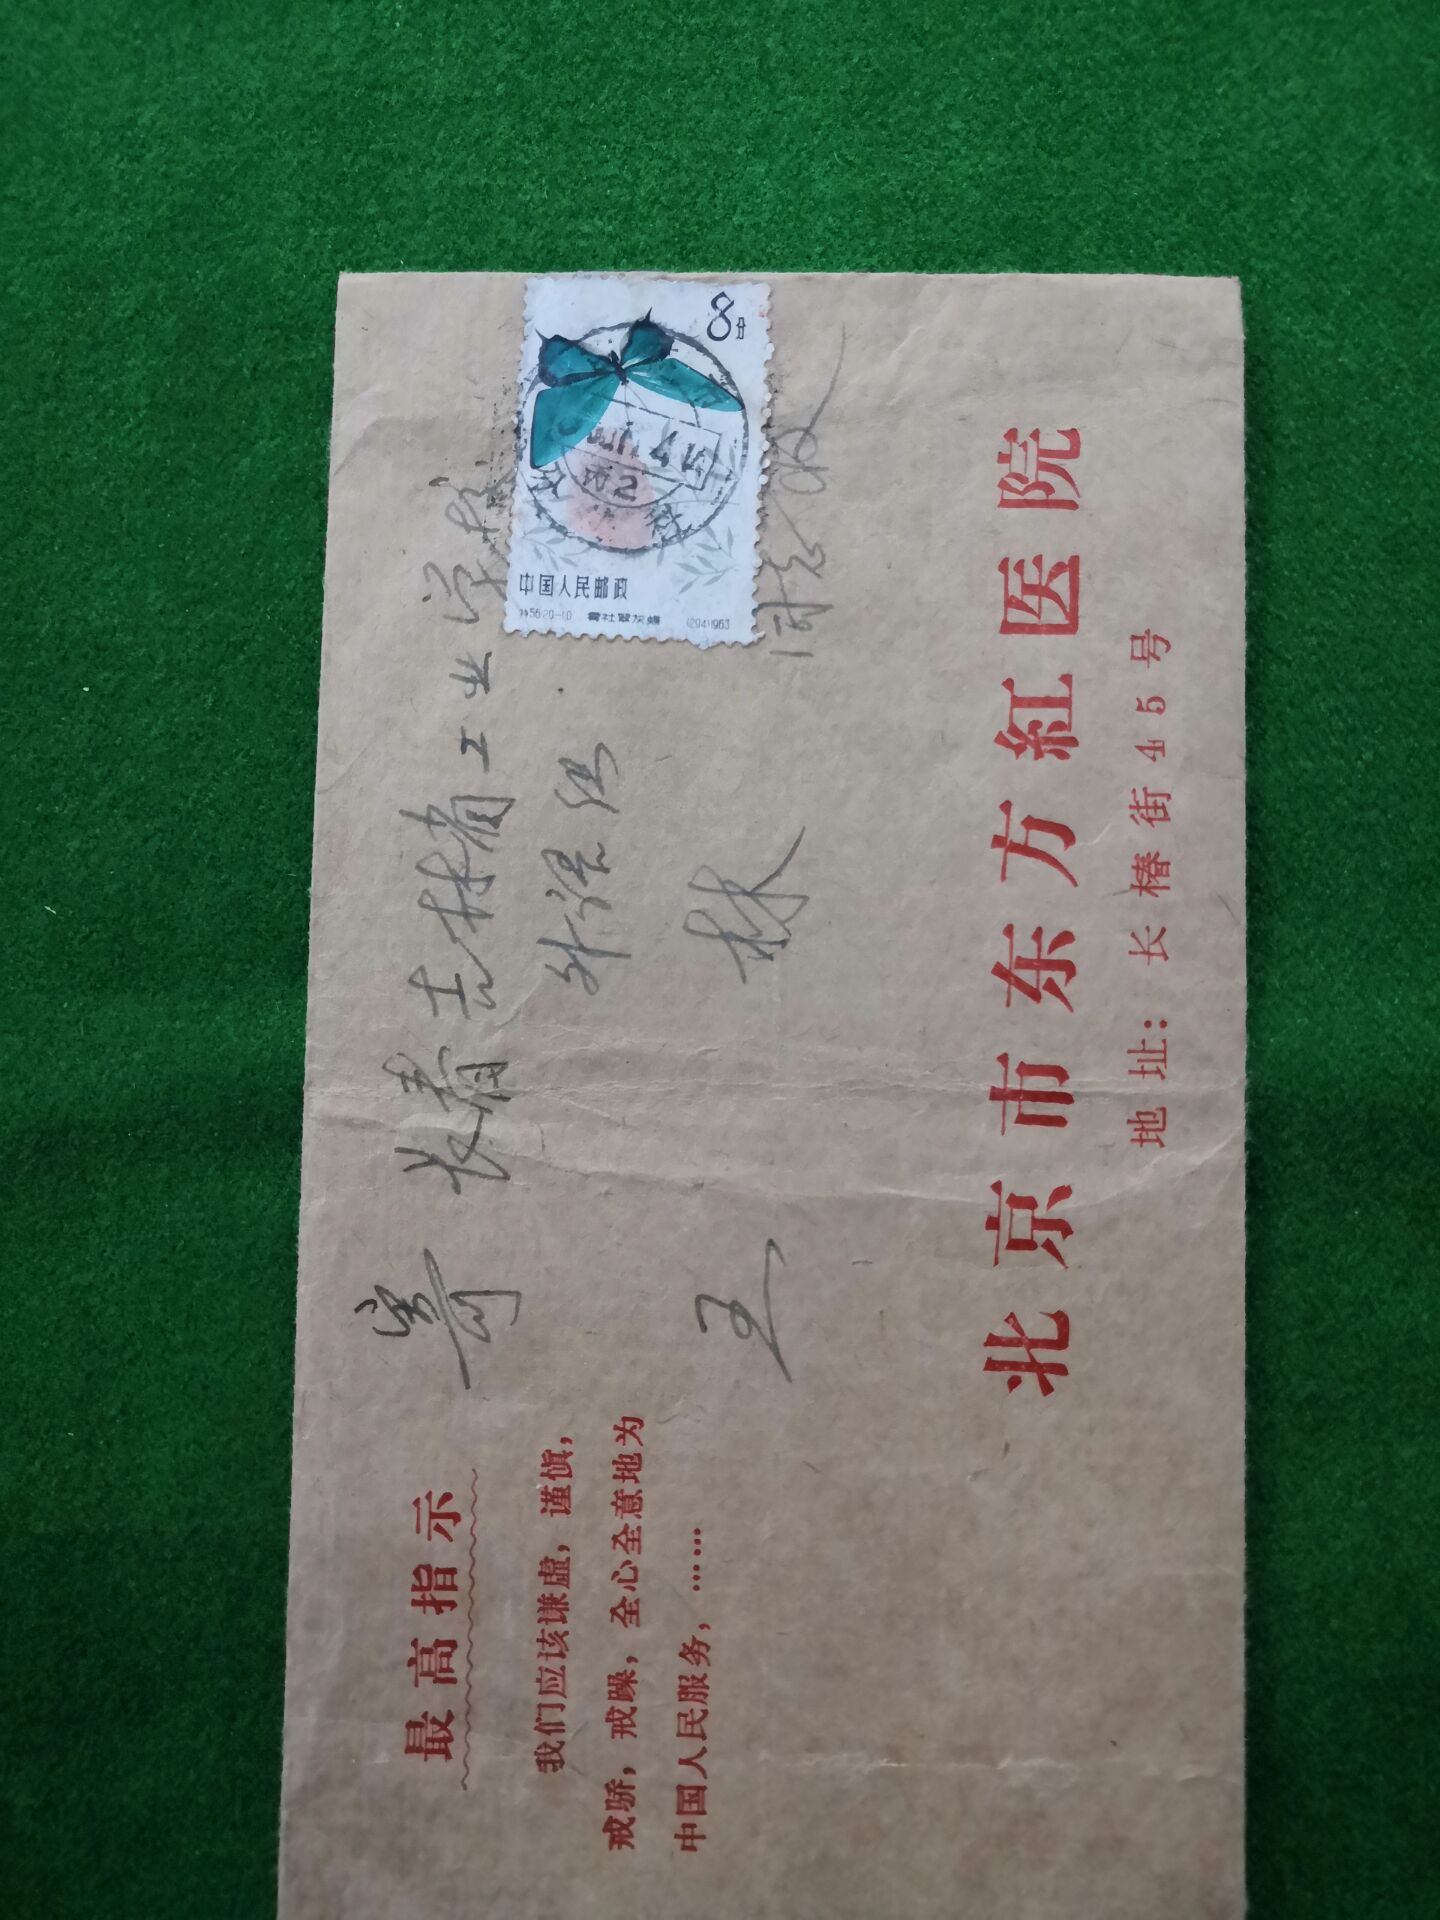 最高指示
我们应该谦虚，谨慎，
戒骄，戒躁，全心全意地为
中国人民服务，……
寄 长春吉林省工业学校
外语组
王 林
同志收
8分
中国人民邮政
特56.20-10 (294)1963
北京
北京市东方紅医院
地址：长椿街45号